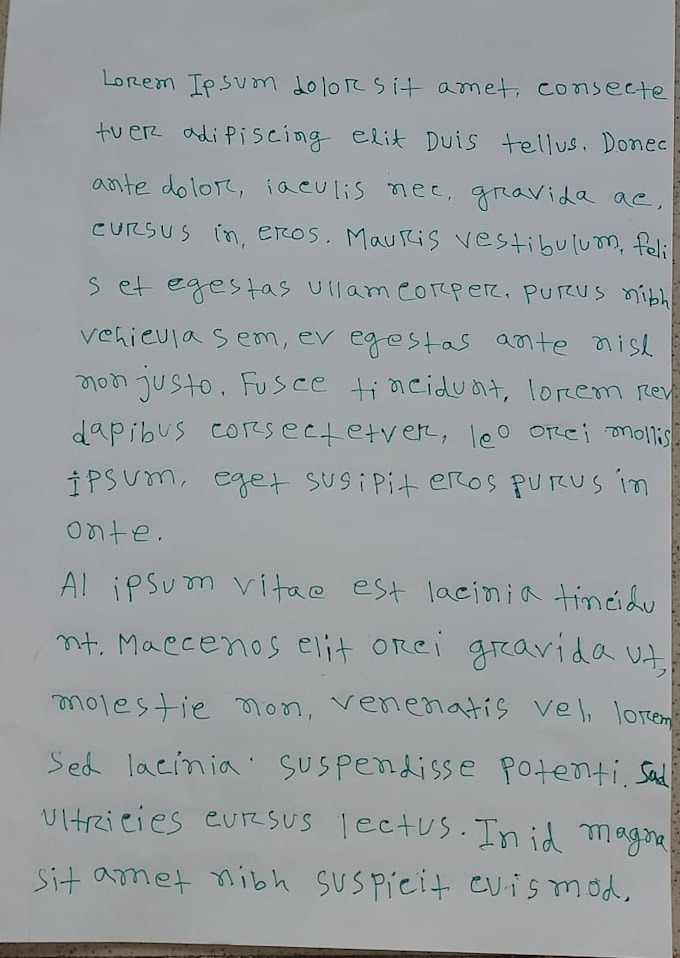 Lorem Ipsum dolor sit amet, consecte
tuer adipiscing elit Duis tellus. Donec
ante dolor, iaculis nec, gravida ac,
cursus in, eros. Mauris vestibulum, feli
s et egestas ullamcorper, purus nibh
vehicula sem, eu egestas ante nisl
non justo. Fusce tincidunt, lorem rev
dapibus corsectetver, leo orci mollis
ipsum, eget susipit eros purus in
onte.
Al ipsum vitae est lacinia tincidu
nt. Maecenos elit orci gravida ut,
molestie non, venenatis vel, lorem
sed lacinia. suspendisse potenti. Sad
ultricies cursus lectus. In id magna
sit amet nibh suspicit euismod.